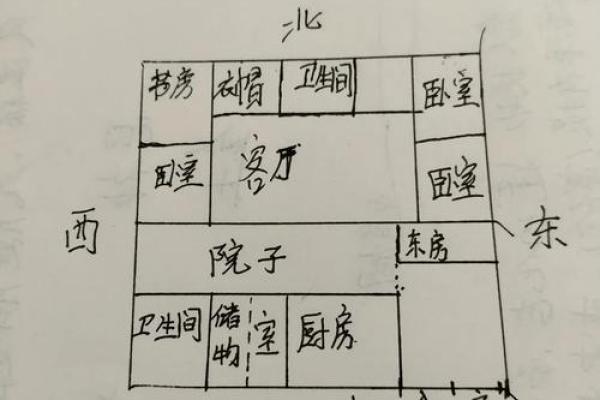 北
书房
衣帽
卫生间
卧室
卧室
客厅
卧室
西
东
院子
东房
卫生间
储物
室
厨房